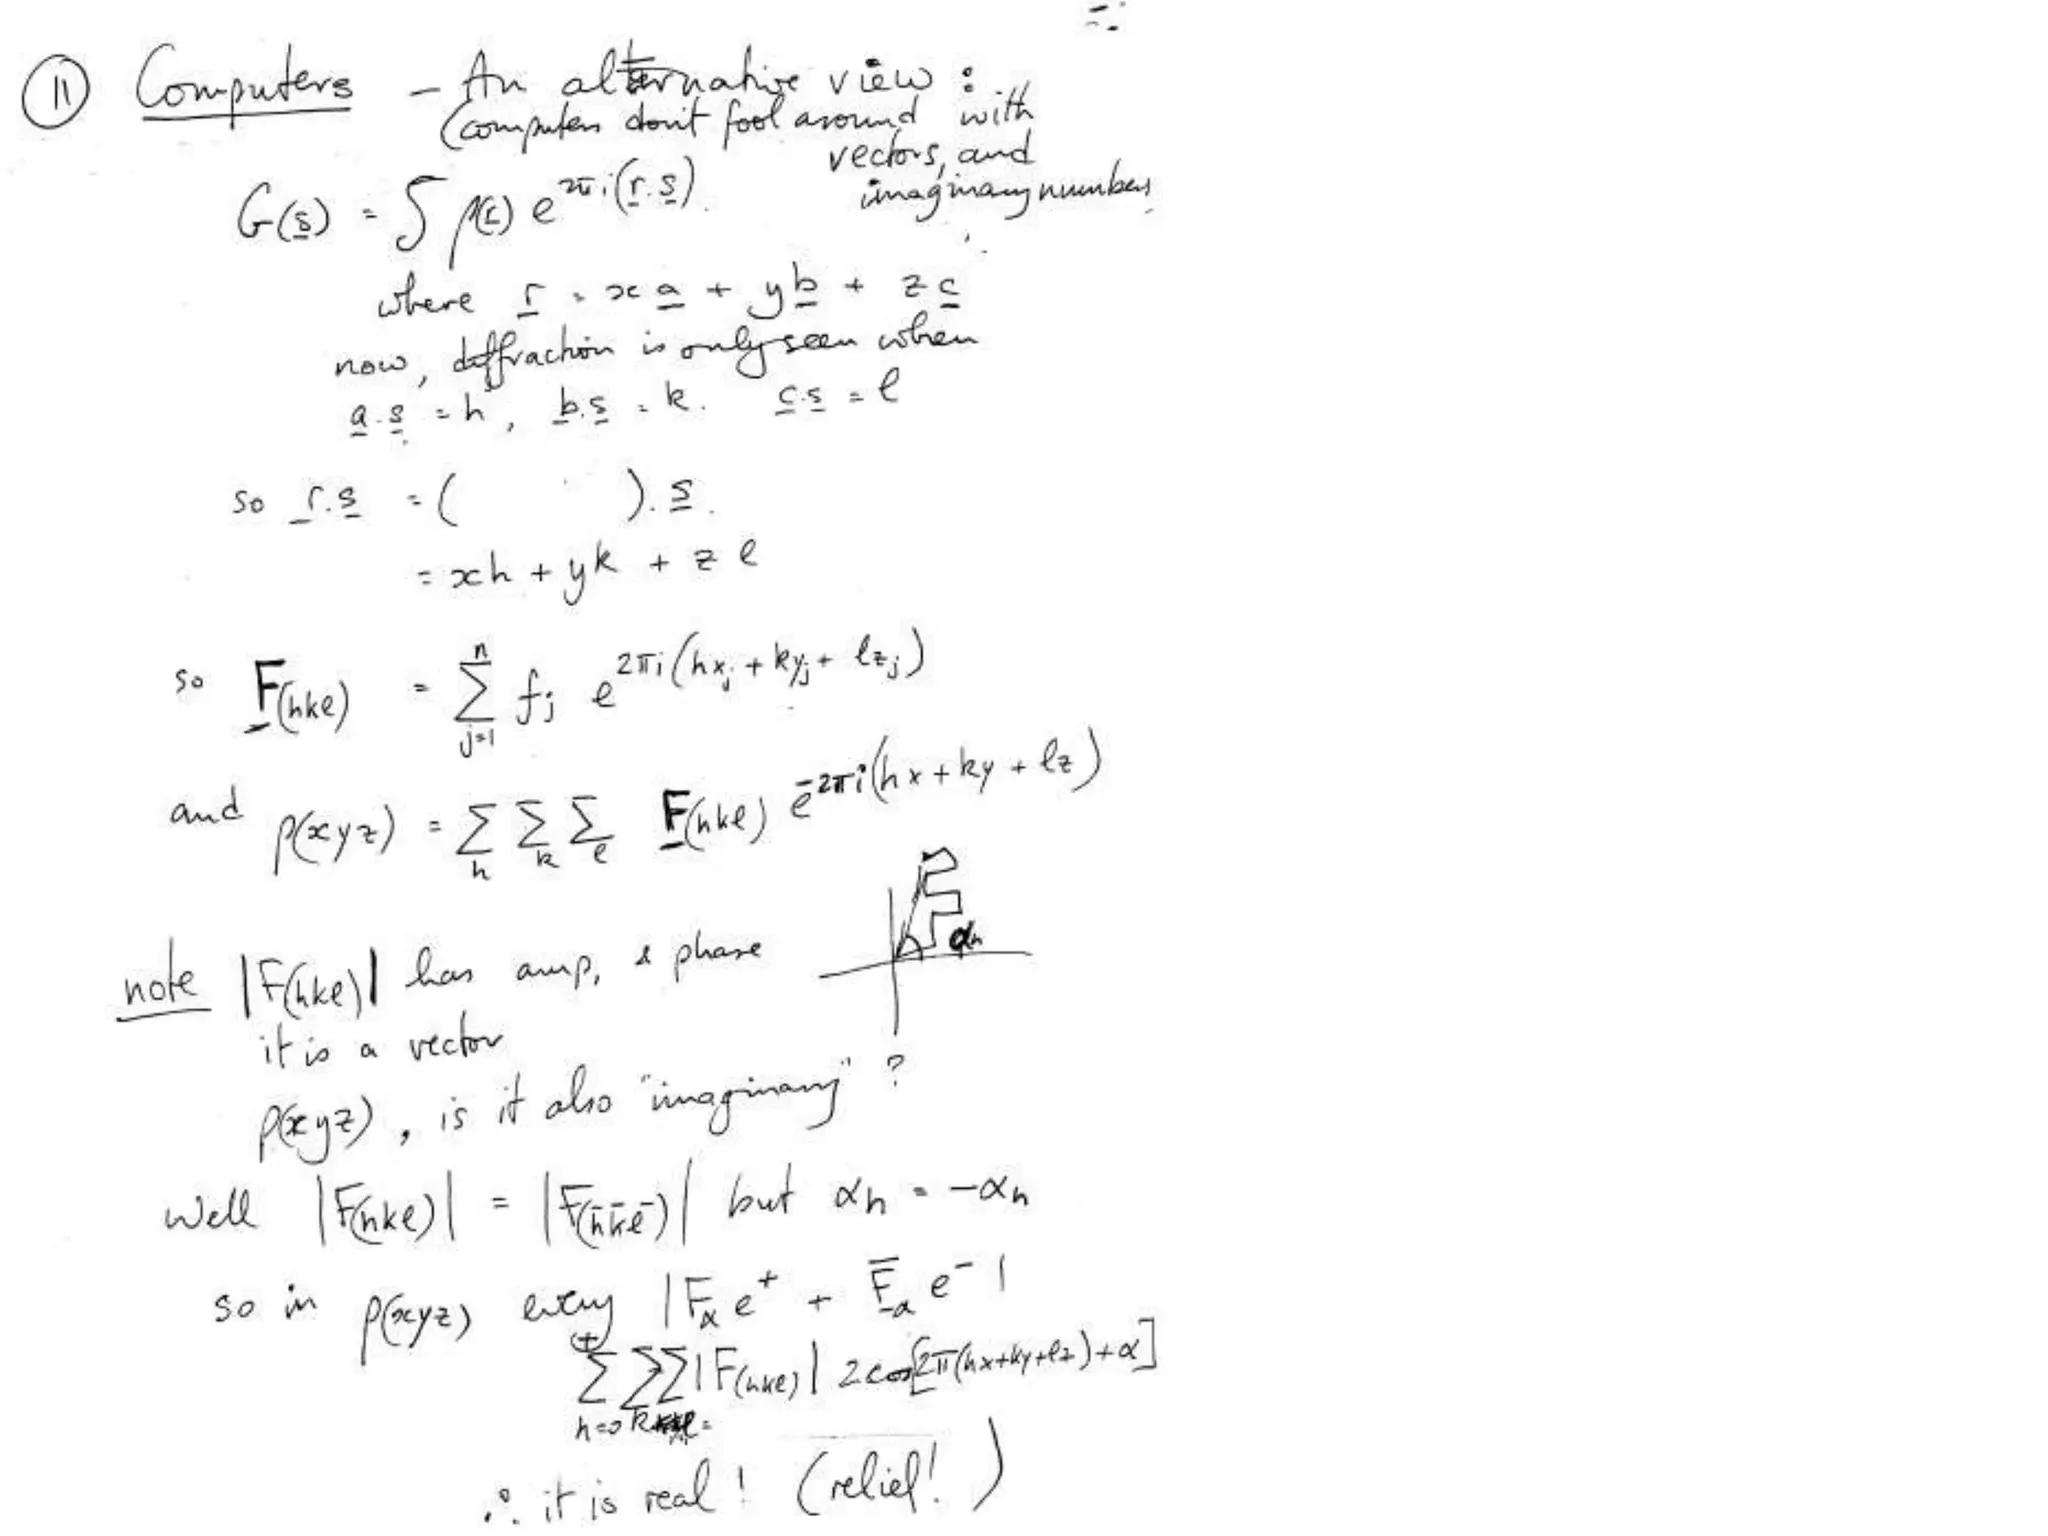 ⑪ Computers – An alternative view :
(computers don't fool around with
vectors, and
imaginary numbers
G(s) = ∫ ρ(r) e^{2πi(r.s)}
where r = x a + y b + z c
now, diffraction is only seen when
a.s = h, b.s = k. c.s = l
so r.s = ( ). s
= xh + yk + z l
so F(hkl) = Σ_{j=1}^{n} f_j e^{2πi(hx_j + ky_j + lz_j)}
and ρ(xyz) = Σ_h Σ_k Σ_l F(hkl) e^{-2πi(hx + ky + lz)}
α_h
note |F(hkl)| has amp, & phase
it is a vector
ρ(xyz), is it also "imaginary" ?
Well |F(hkl)| = |F(h̄k̄l̄)| but αh = -αh
so in ρ(xyz) every |F_α e⁺ + F̄_{-α} e⁻|
Σ^{+}_{h=0} Σ_k Σ |F(hkl)| 2cos[2π(hx+ky+lz)+α]
∴ it is real ! (relief! )